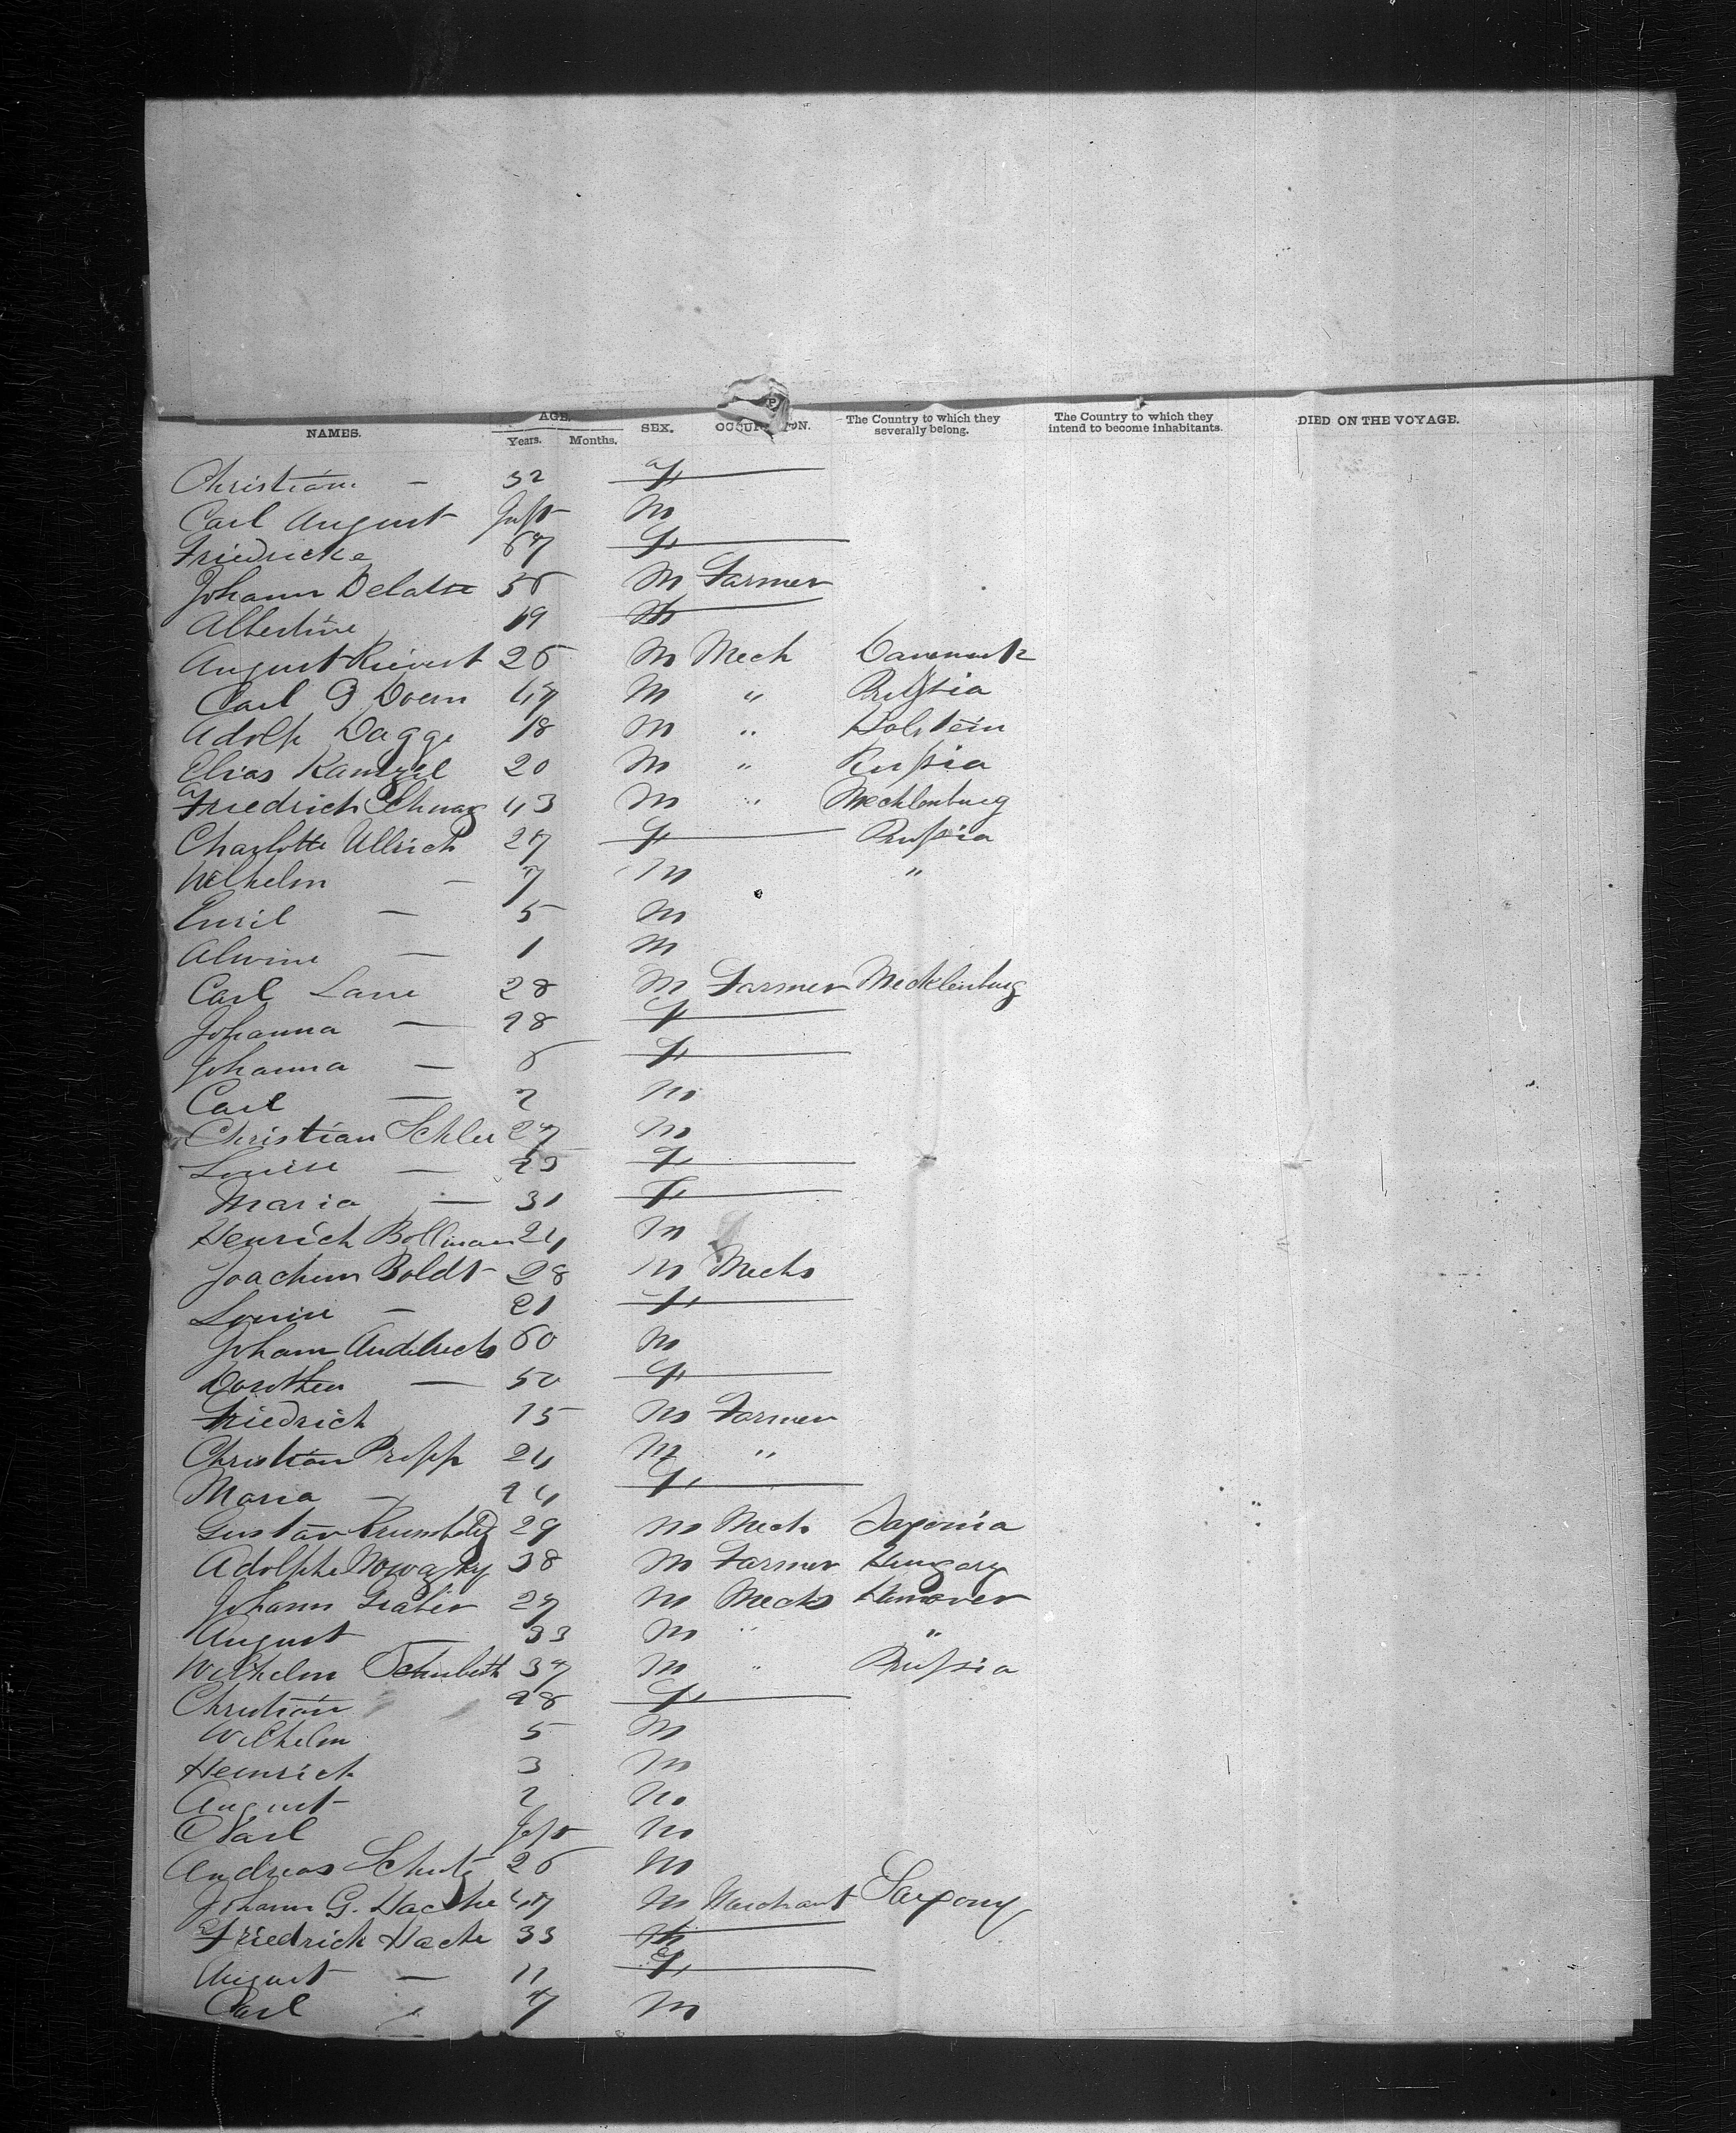 NAMES. AGE. Years. Months. SEX. OCCUPATION. The Country to which they severally belong. The Country to which they intend to become inhabitants. DIED ON THE VOYAGE.
Christian — 32 F
Carl August Inft M
Friedricke 67 F
Johann Delatse 56 M Farmer
Albertine 19
August Rievert 26 M Mech Danemark
Carl Doern 47 M " Prussia
Adolf Dagge 18 M " Holstein
Elias 20 M " Russia
Friedrich 43 M " Mecklenburg
Charlotte Ullrich 27 F Prussia
Wilhelm — 7 M "
Emil — 5 M
Alwine — 1 M
Carl Lane 28 M Farmer Mecklenburg
Johanna — 28 F
Johanna — 6 F
Carl — 2 M
Christian Schlee 27 M
Louise — 23 F
Maria — 31 F
Henrich Bollman 24 M
Joachim Boldt 28 M Mech
Louise — 21 F
Johann 60 M
Dorothea — 50 F
Friedrich 15 M Farmer
Christian Propp 24 M "
Maria — 24 F
Gustav 29 M Mech Saxonia
Adolphe 38 M Farmer Hungary
Johann Grabir 27 M Mech Hanover
August — 33 M " "
Wilhelm Schuberth 37 M " Prussia
Christian 28 F
Wilhelm 5 M
Heinrich 3 M
August 2 M
Carl Inft M
Andreas Schutz 26 M
Johann G. Hache 47 M Merchant Saxony
Friedrich Hache 33
August — 11 F
Carl " 7 M